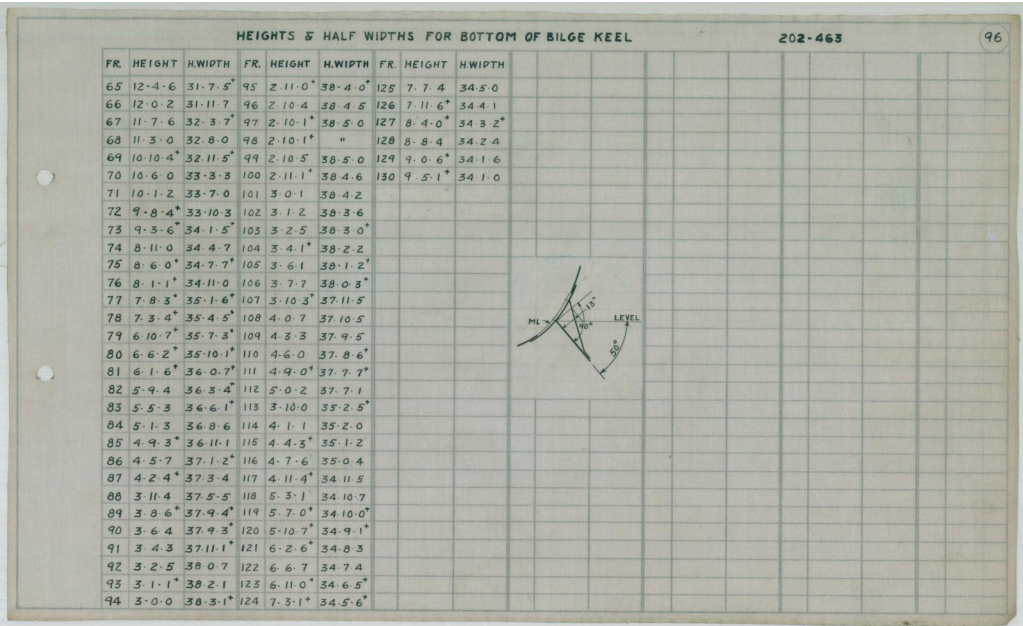 HEIGHTS & HALF WIDTHS FOR BOTTOM OF BILGE KEEL 202-463 96
FR. HEIGHT H.WIDTH FR. HEIGHT H.WIDTH FR. HEIGHT H.WIDTH
65 12-4-6 31·7·5+ 95 2·11·0+ 38-4·0+ 125 7·7·4 34·5·0
66 12·0·2 31·11·7 96 2·10·4 38·4·5 126 7·11·6+ 34·4·1
67 11·7·6 32·3·7+ 97 2·10·1+ 38·5·0 127 8·4·0+ 34·3·2+
68 11·3·0 32·8·0 98 2·10·1+ " 128 8·8·4 34·2·4
69 10·10·4+ 32·11·5+ 99 2·10·5 38·5·0 129 9·0·6+ 34·1·6
70 10·6·0 33-3-3 100 2·11·1+ 38·4·6 130 9·5·1+ 34·1·0
71 10·1·2 33·7·0 101 3·0·1 38·4·2
72 9-8-4+ 33·10·3 102 3·1·2 38·3·6
73 9-3-6+ 34·1·5+ 103 3·2·5 38·3·0+
74 8·11·0 34·4·7 104 3·4·1+ 38·2·2
75 8·6·0+ 34·7·7+ 105 3·6·1 38·1·2+
76 8·1·1+ 34·11·0 106 3·7·7 38·0·3+
77 7·8·3+ 35·1·6+ 107 3·10·3+ 37·11·5
78 7·3·4+ 35·4·5+ 108 4·0·7 37·10·5
79 6·10·7+ 35·7·3+ 109 4·3·3 37·9·5
80 6·6·2+ 35·10·1+ 110 4·6·0 37·8·6+
81 6·1·6+ 36·0·7+ 111 4·9·0+ 37·7·7+
82 5·9·4 36·3·4+ 112 5·0·2 37·7·1
83 5·5·3 36·6·1+ 113 3·10·0 35·2·5+
84 5·1·3 36·8·6 114 4·1·1 35·2·0
85 4·9·3+ 36·11·1 115 4·4·3+ 35·1·2
86 4·5·7 37·1·2+ 116 4·7·6 35·0·4
87 4·2·4+ 37·3·4 117 4·11·4+ 34·11·5
88 3·11·4 37·5·5 118 5·3·1 34·10·7
89 3·8·6+ 37·9·4+ 119 5·7·0+ 34·10·0+
90 3·6·4 37·9·3+ 120 5·10·7+ 34·9·1+
91 3·4·3 37·11·1+ 121 6·2·6+ 34·8·3
92 3·2·5 38·0·7 122 6·6·7 34·7·4
93 3·1·1+ 38·2·1 123 6·11·0+ 34·6·5+
94 3-0-0 38·3·1+ 124 7·3·1+ 34·5·6+
13"
ML
LEVEL
90°
50°